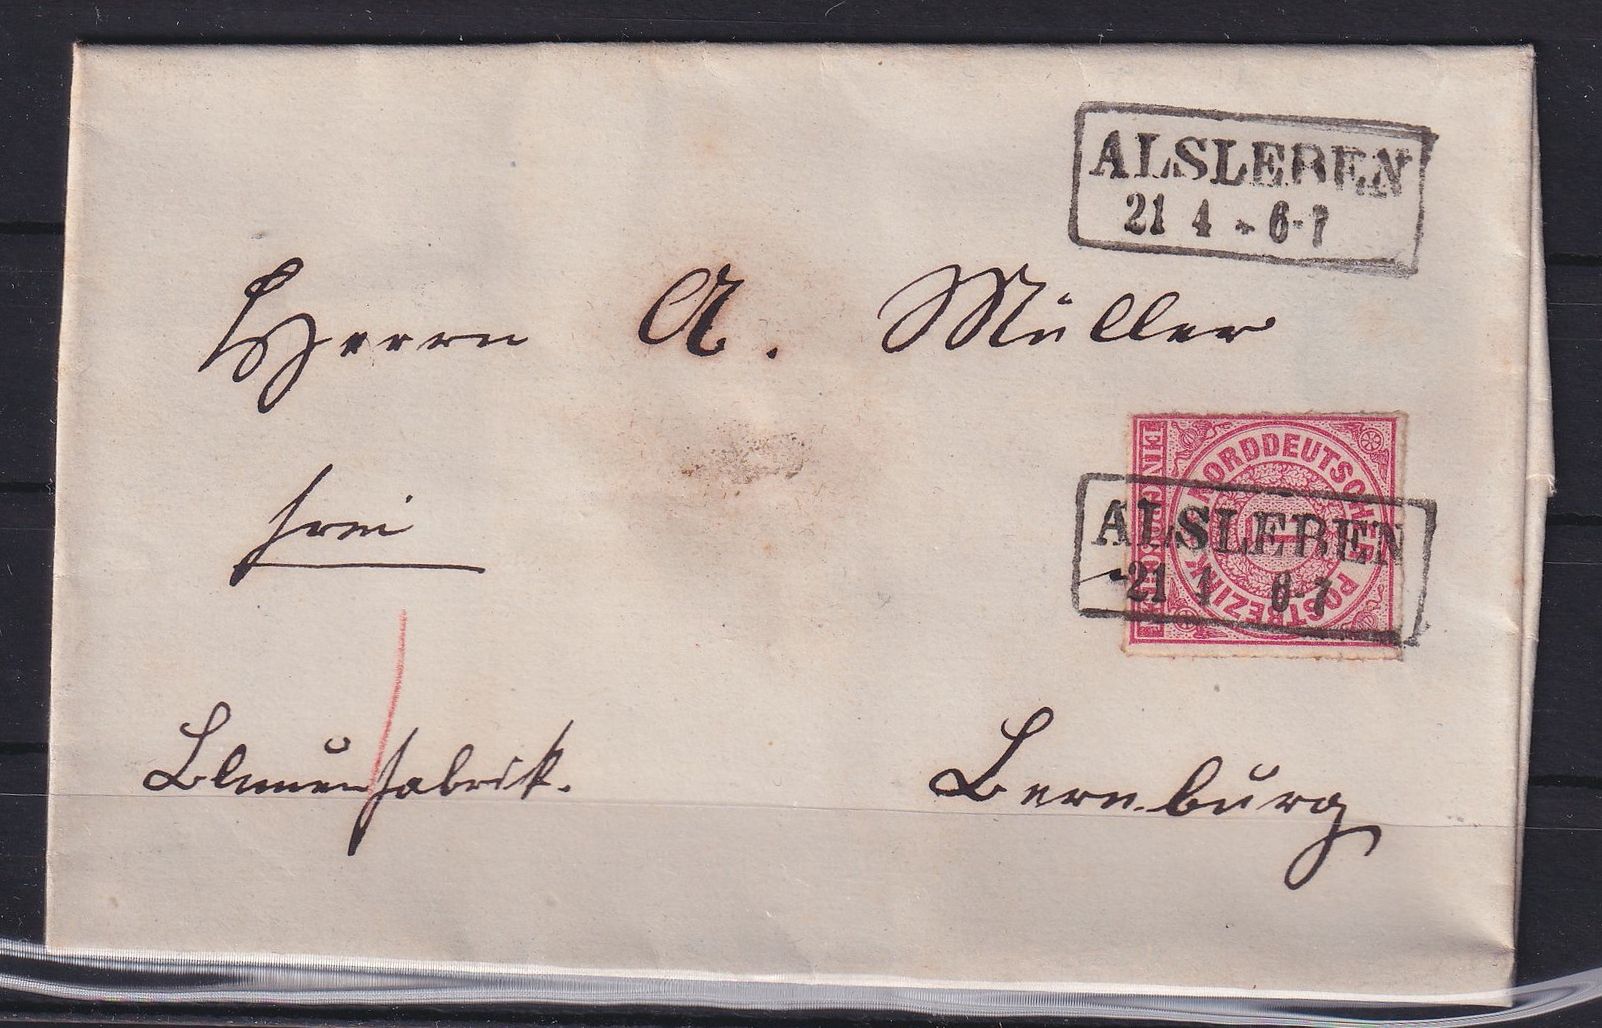 ALSLEBEN
21 4 * 6-7
Herrn A. Müller
NORDDEUTSCHER POSTBEZIRK
EIN GROSCHEN
1
ALSLEBEN
21 4 6-7
frei
Blumenfabrik.
Bernburg